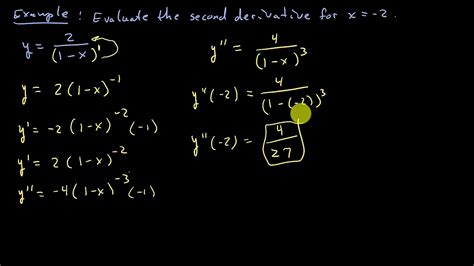 Example : Evaluate the second derivative for x = -2.
y = 2/(1-x)¹
y = 2(1-x)⁻¹
y' = -2(1-x)⁻²(-1)
y' = 2(1-x)⁻²
y'' = -4(1-x)⁻³(-1)
y'' = 4/(1-x)³
y''(-2) = 4/(1-(-2))³
y''(-2) = 4/27